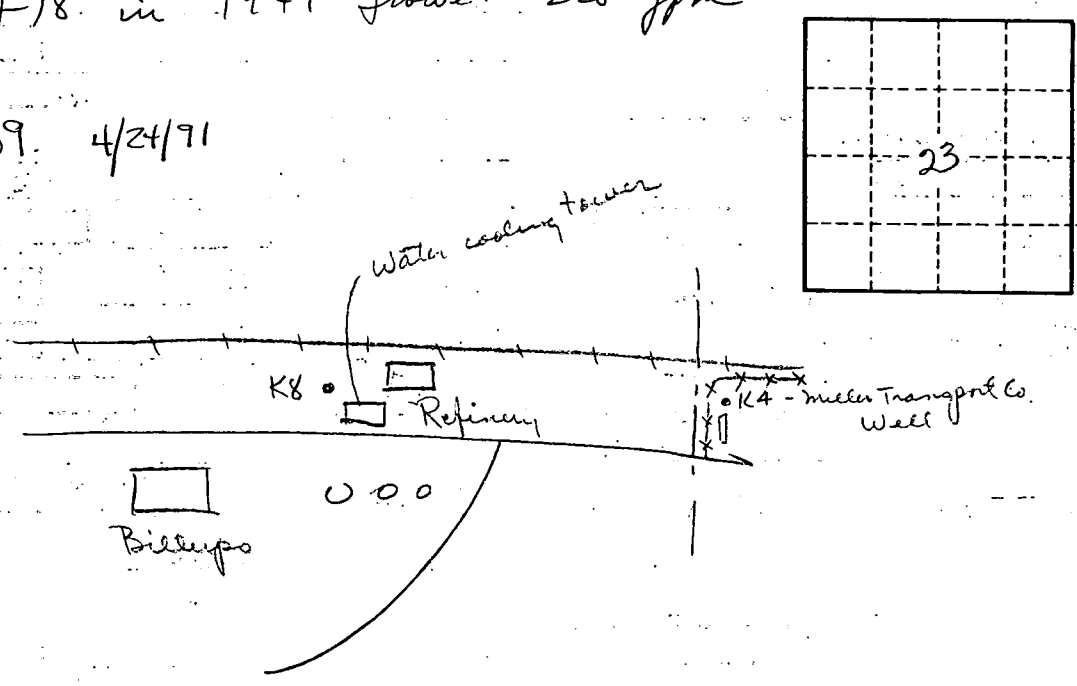 in 1941
9. 4/24/91
23
Water cooling tower
K8
Refinery
K4 - Miller Transport Co.
Well
Billups